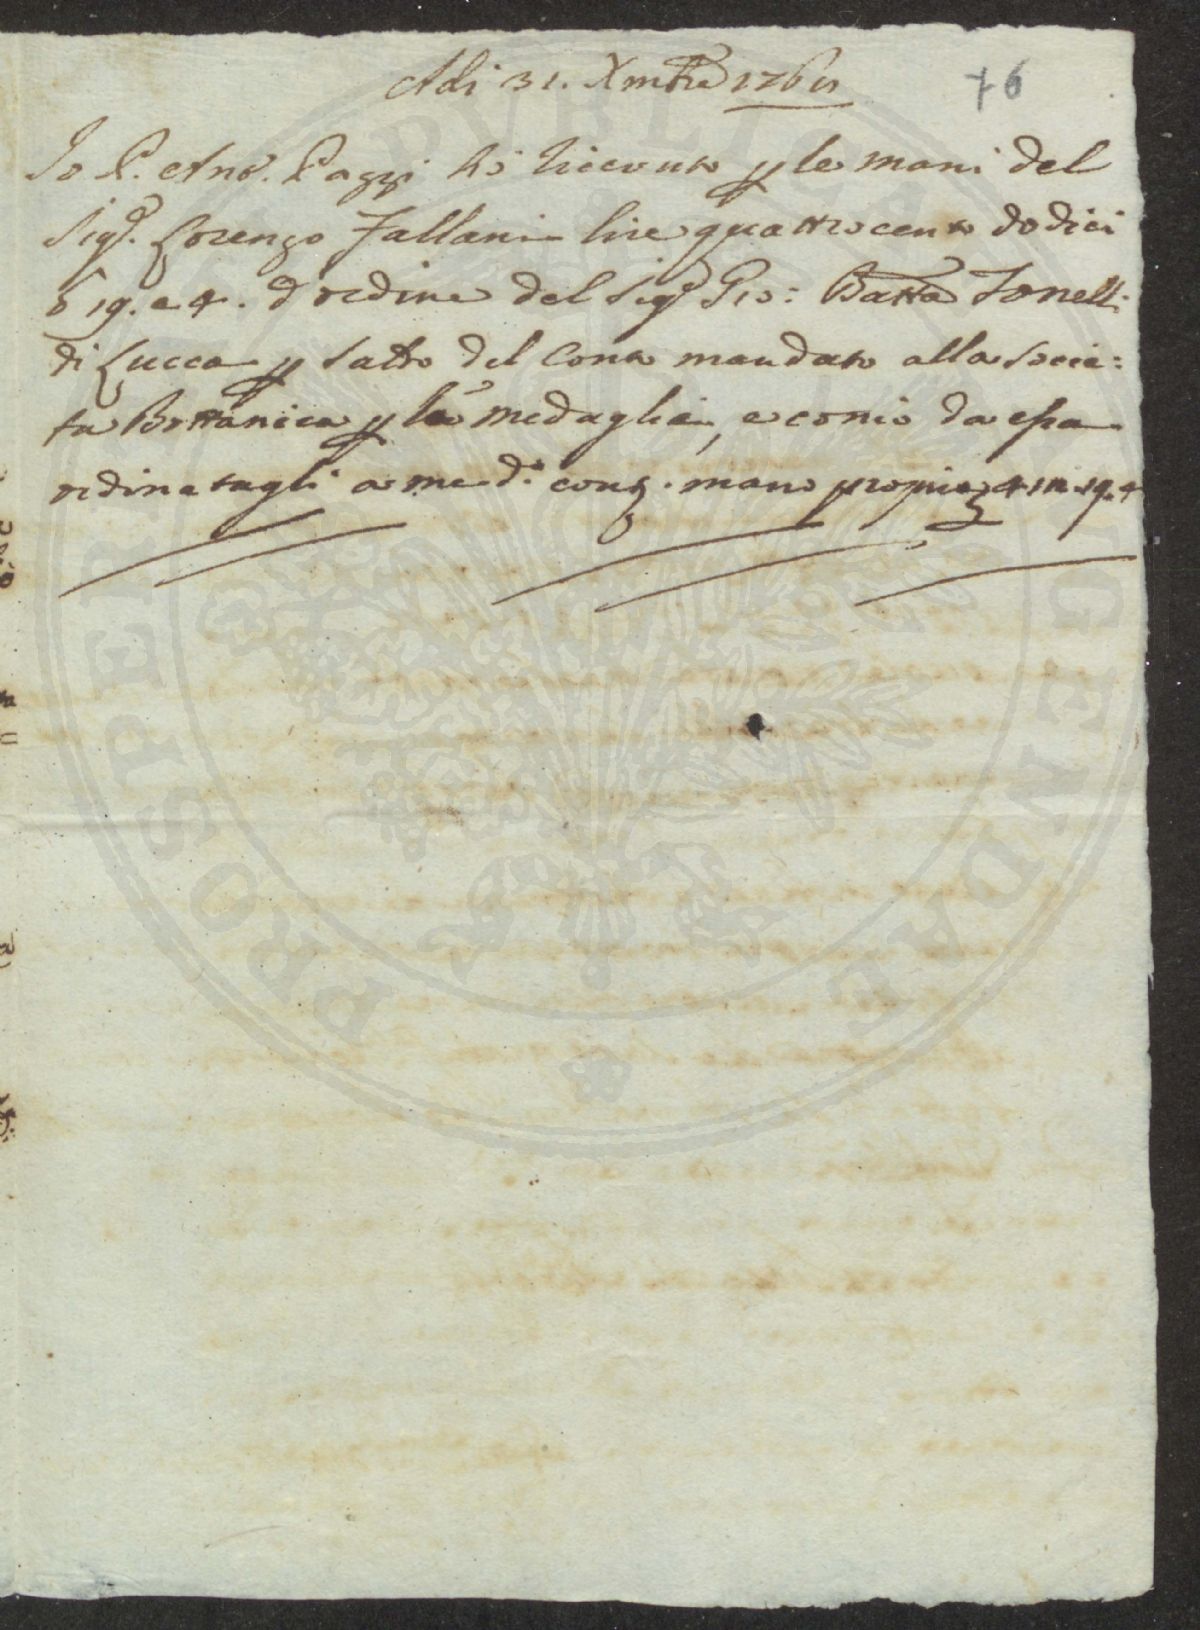 Adi 31. Xmbre 176
76
Io P. Ant. Pazzi hò riceuuto p le mani del
Sigr. Lorenzo Fallani lire quattrocento dodici
6 19. e 4. d'ordine del Sigr Gio: Batta Tonelli
di Lucca p saldo del Conto mandato alla Socie:
ta Bottanica p le medaglie, e conio da essa
ordinatagli a me do. cont. mano propria 412.19.4
PROSPERITATI PUBLICAE AUGENDAE